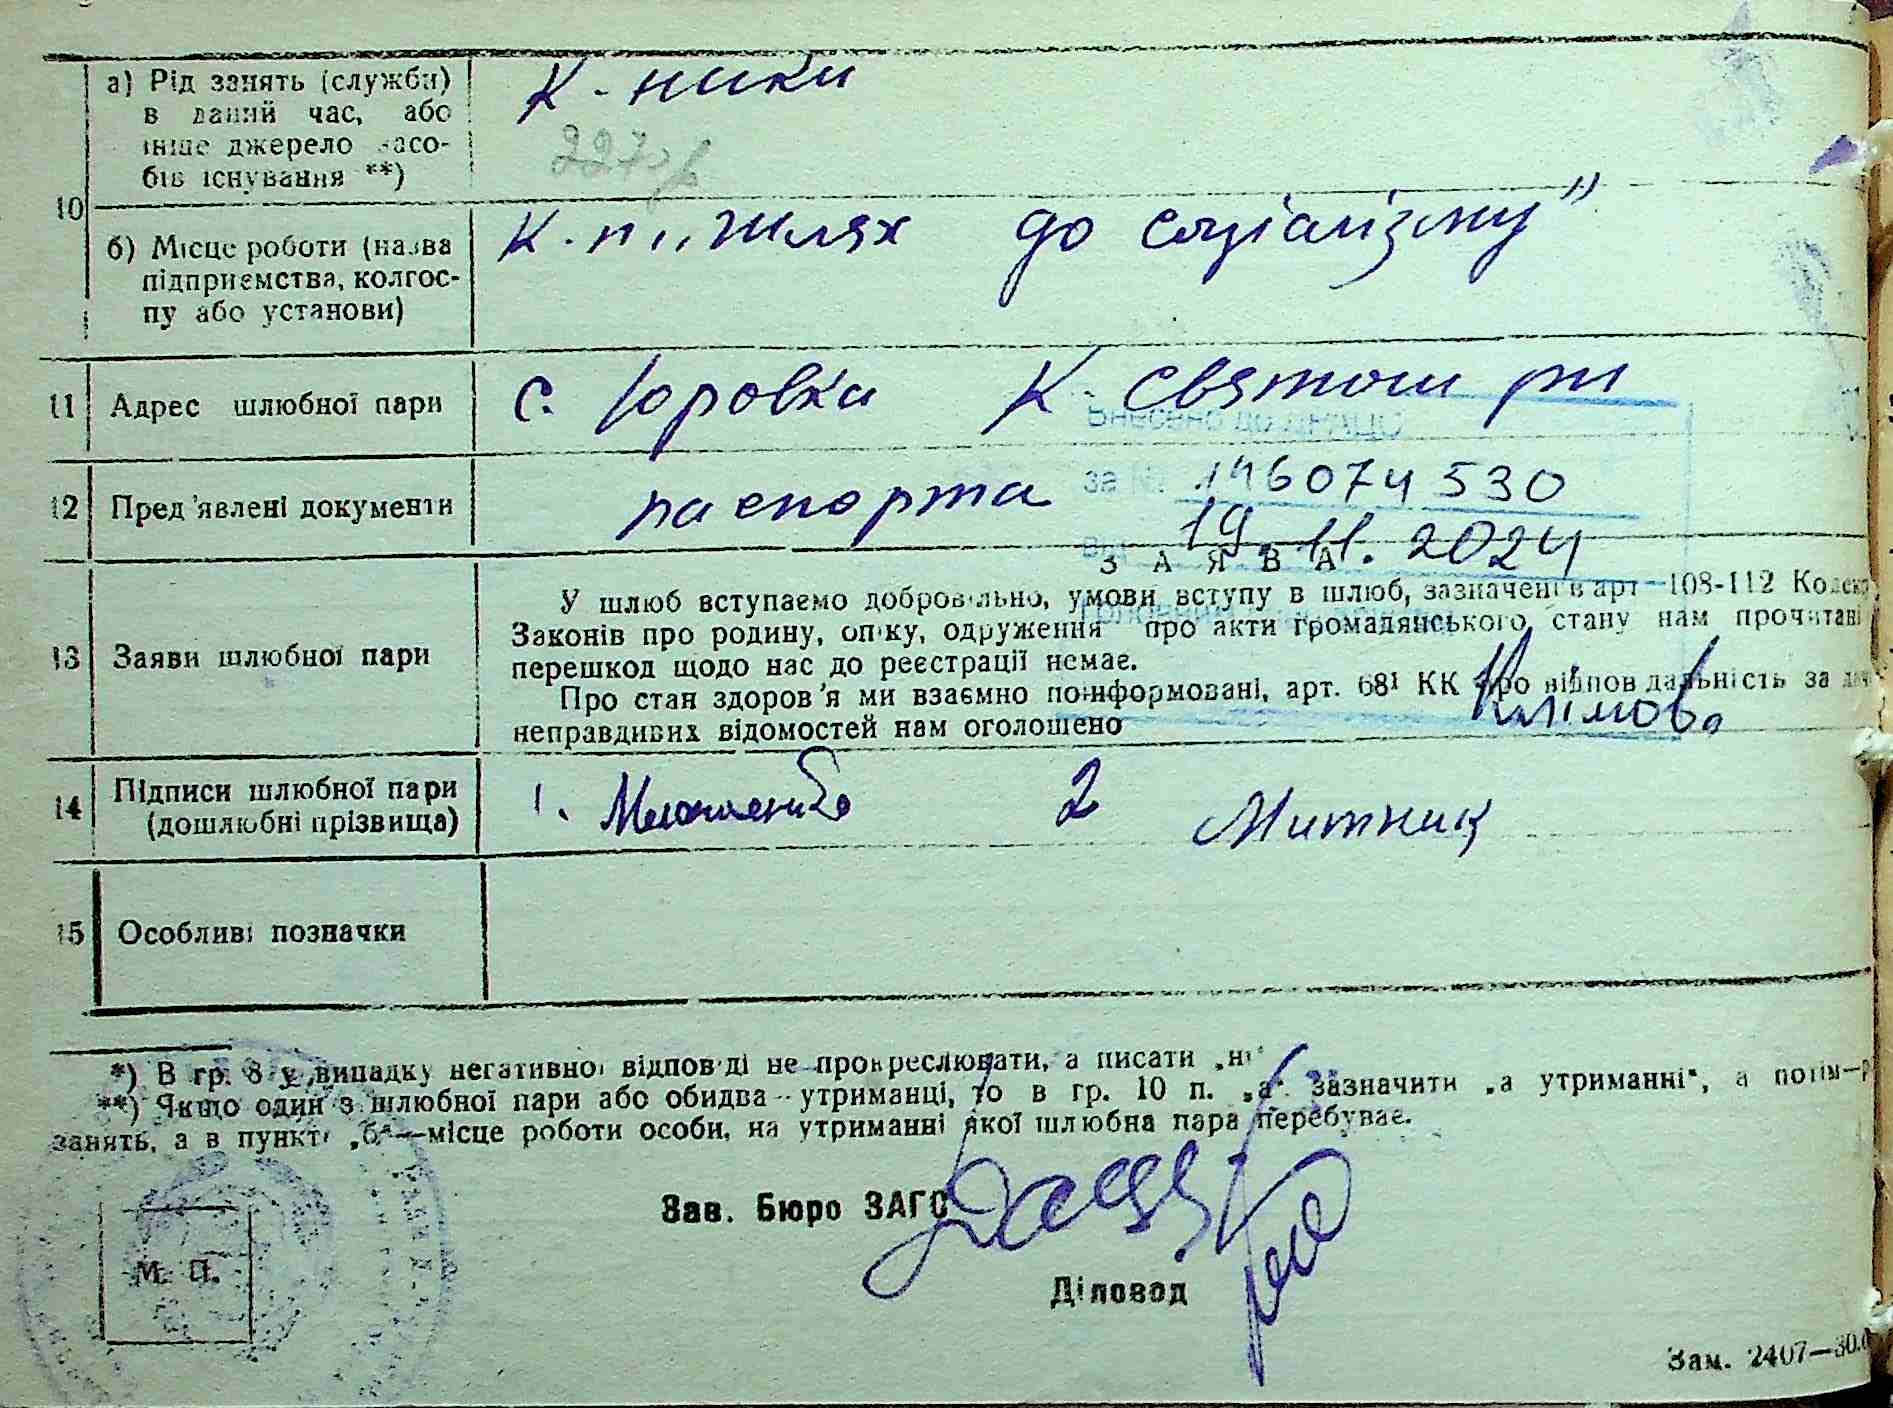 а) Рід занять (служби)
в даний час, або
інше джерело засо-
бів існування **)
К-ники
227
10
б) Місце роботи (назва
підприємства, колгос-
пу або установи)
К-п „Шлях до соціалізму"
11 Адрес шлюбної пари
с. Юровка К-Святош рн
12 Пред'явлені документи
паспорта
за № 146074530
19.11.2024
ЗАЯВА
13 Заяви шлюбної пари
У шлюб вступаємо добровільно, умови вступу в шлюб, зазначені в арт 108-112 Кодекс
Законів про родину, опіку, одруження про акти громадянського стану нам прочитані
перешкод щодо нас до реєстрації немає.
Про стан здоров'я ми взаємно поінформовані, арт. 68¹ КК про відповідальність за
неправдивих відомостей нам оголошено
Клімова
14 Підписи шлюбної пари
(дошлюбні прізвища)
1. 2 Митник
15 Особливі позначки
*) В гр. 8 у випадку негативної відповіді не прокреслювати, а писати „ні"
**) Якщо один з шлюбної пари або обидва—утриманці, то в гр. 10 п. „а" зазначити „а утриманні", а потім—р
занять, а в пункті „б"—місце роботи особи, на утриманні якої шлюбна пара перебуває.
Зав. Бюро ЗАГС
М. П.
Діловод
Зам. 2407—30.